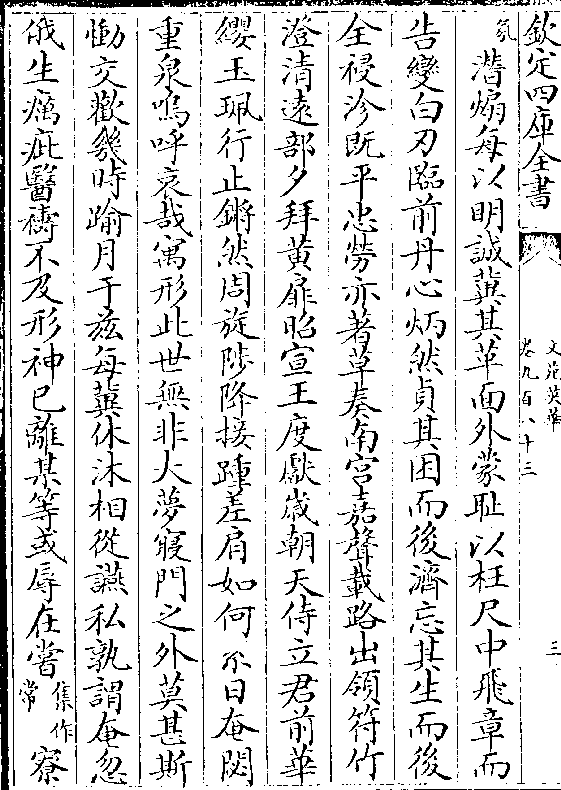 欽定四庫全書
文苑英華
卷九百八十三
三
氛潛煽每以明誠冀其革面外蒙恥以枉尺中飛章而
告變白刃臨前丹心炳然貞其困而後濟忘其生而後
全祲沴既平忠勞亦著草奏南宮嘉聲載路出領符竹
澄清遠部夕拜黃扉昭宣王度獻嵗朝天侍立君前華
纓玉珮行止鏘然周旋陟降接踵差肩如何不日奄閟
重泉嗚呼哀哉寓形此世無非大夢寢門之外莫甚斯
慟交歡幾時踰月于兹每冀休沐相從讌私孰謂奄忽
俄生癘疵醫禱不及形神已離某等或辱在嘗集作常寮